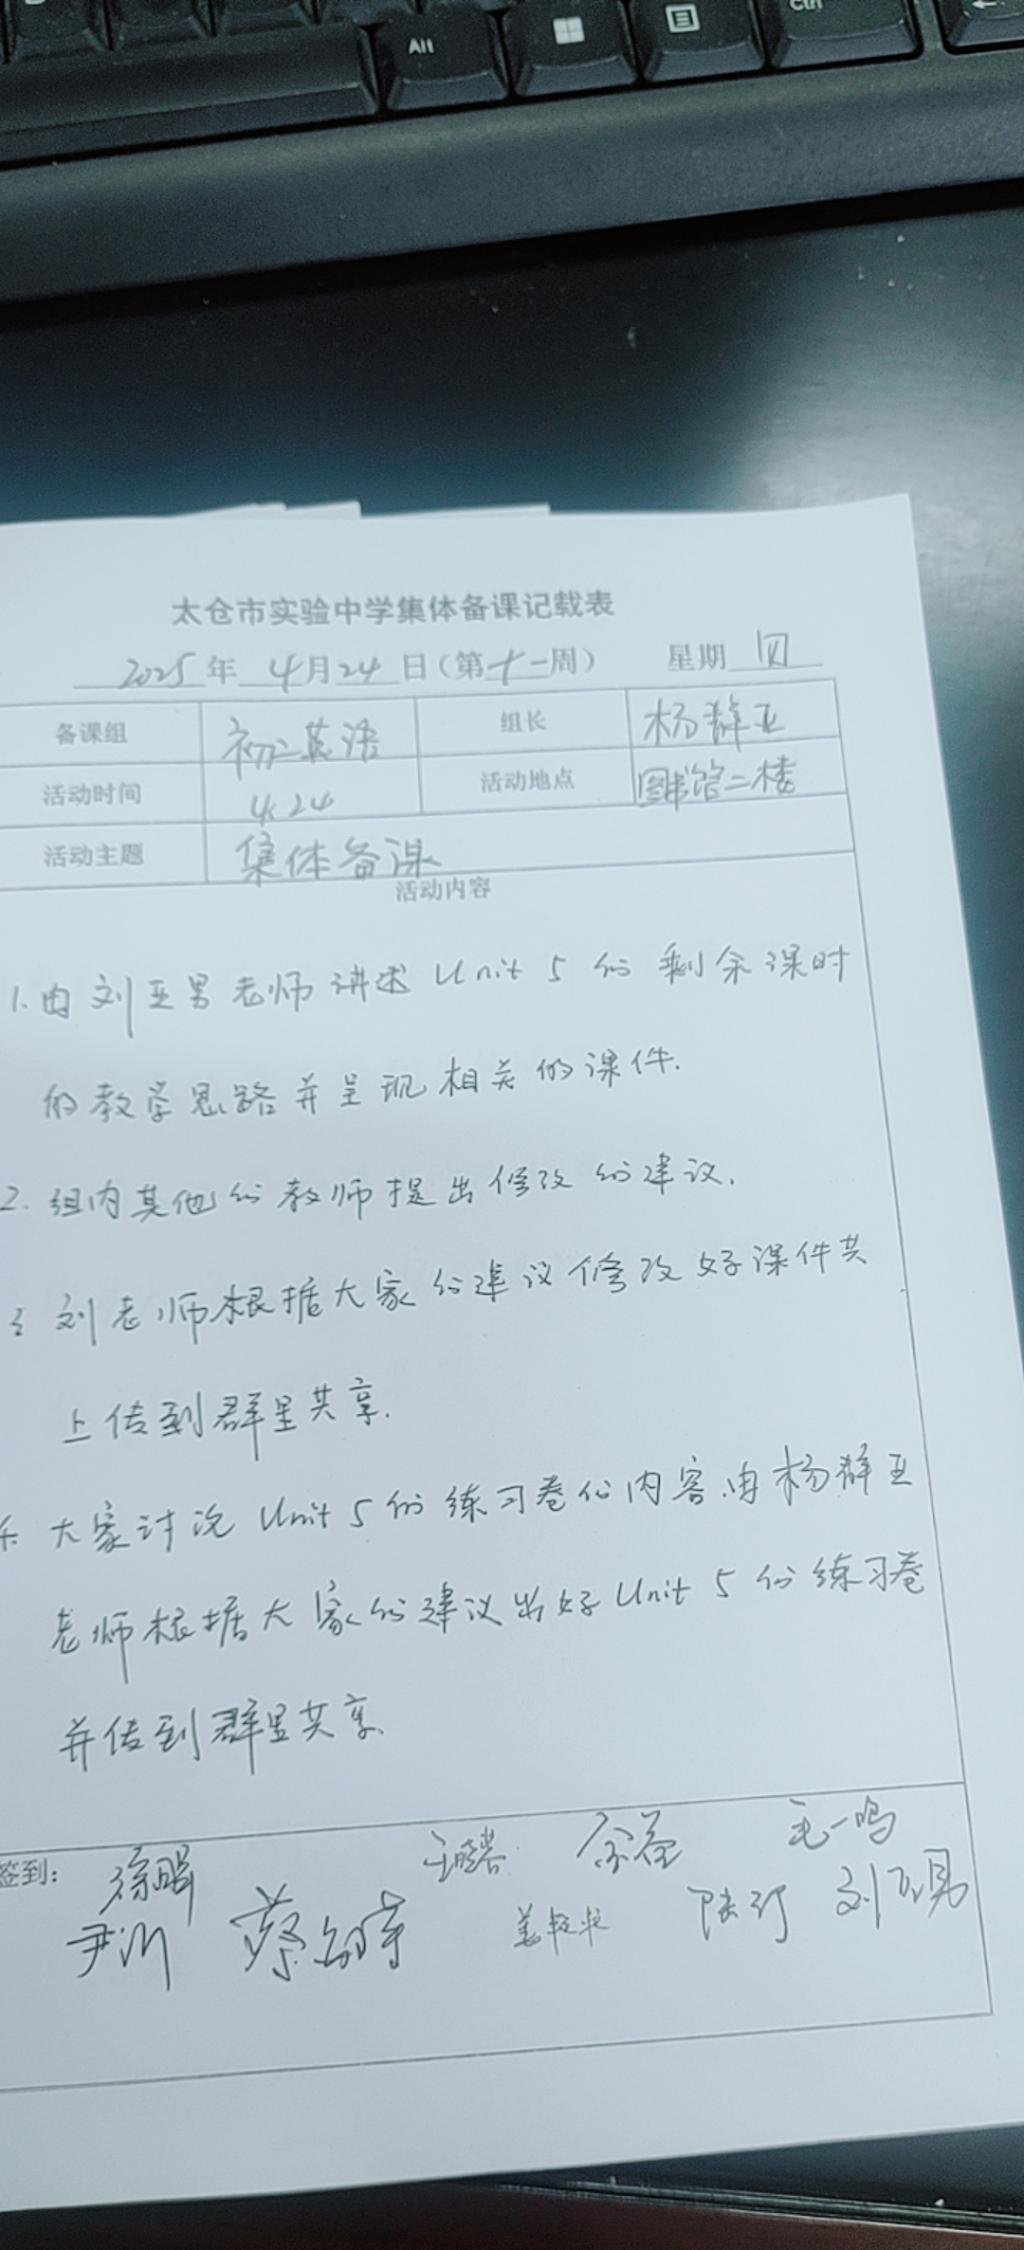 Alt
Ctrl
太仓市实验中学集体备课记载表
2025年 4月24日(第十一周) 星期 四
备课组 初二英语 组长 杨群亚
活动时间 4.24 活动地点 图书馆二楼
活动主题 集体备课
活动内容
1.由刘亚男老师讲述 Unit 5 的剩余课时
的教学思路并呈现相关的课件.
2.组内其他的教师提出修改的建议.
3 刘老师根据大家的建议修改好课件共
上传到群里共享.
4. 大家讨论 Unit 5 的练习卷的内容.由杨群亚
老师根据大家的建议出好 Unit 5 的练习卷
并传到群里共享.
签到: 徐鹏 毛一鸣
尹州 刘亚男